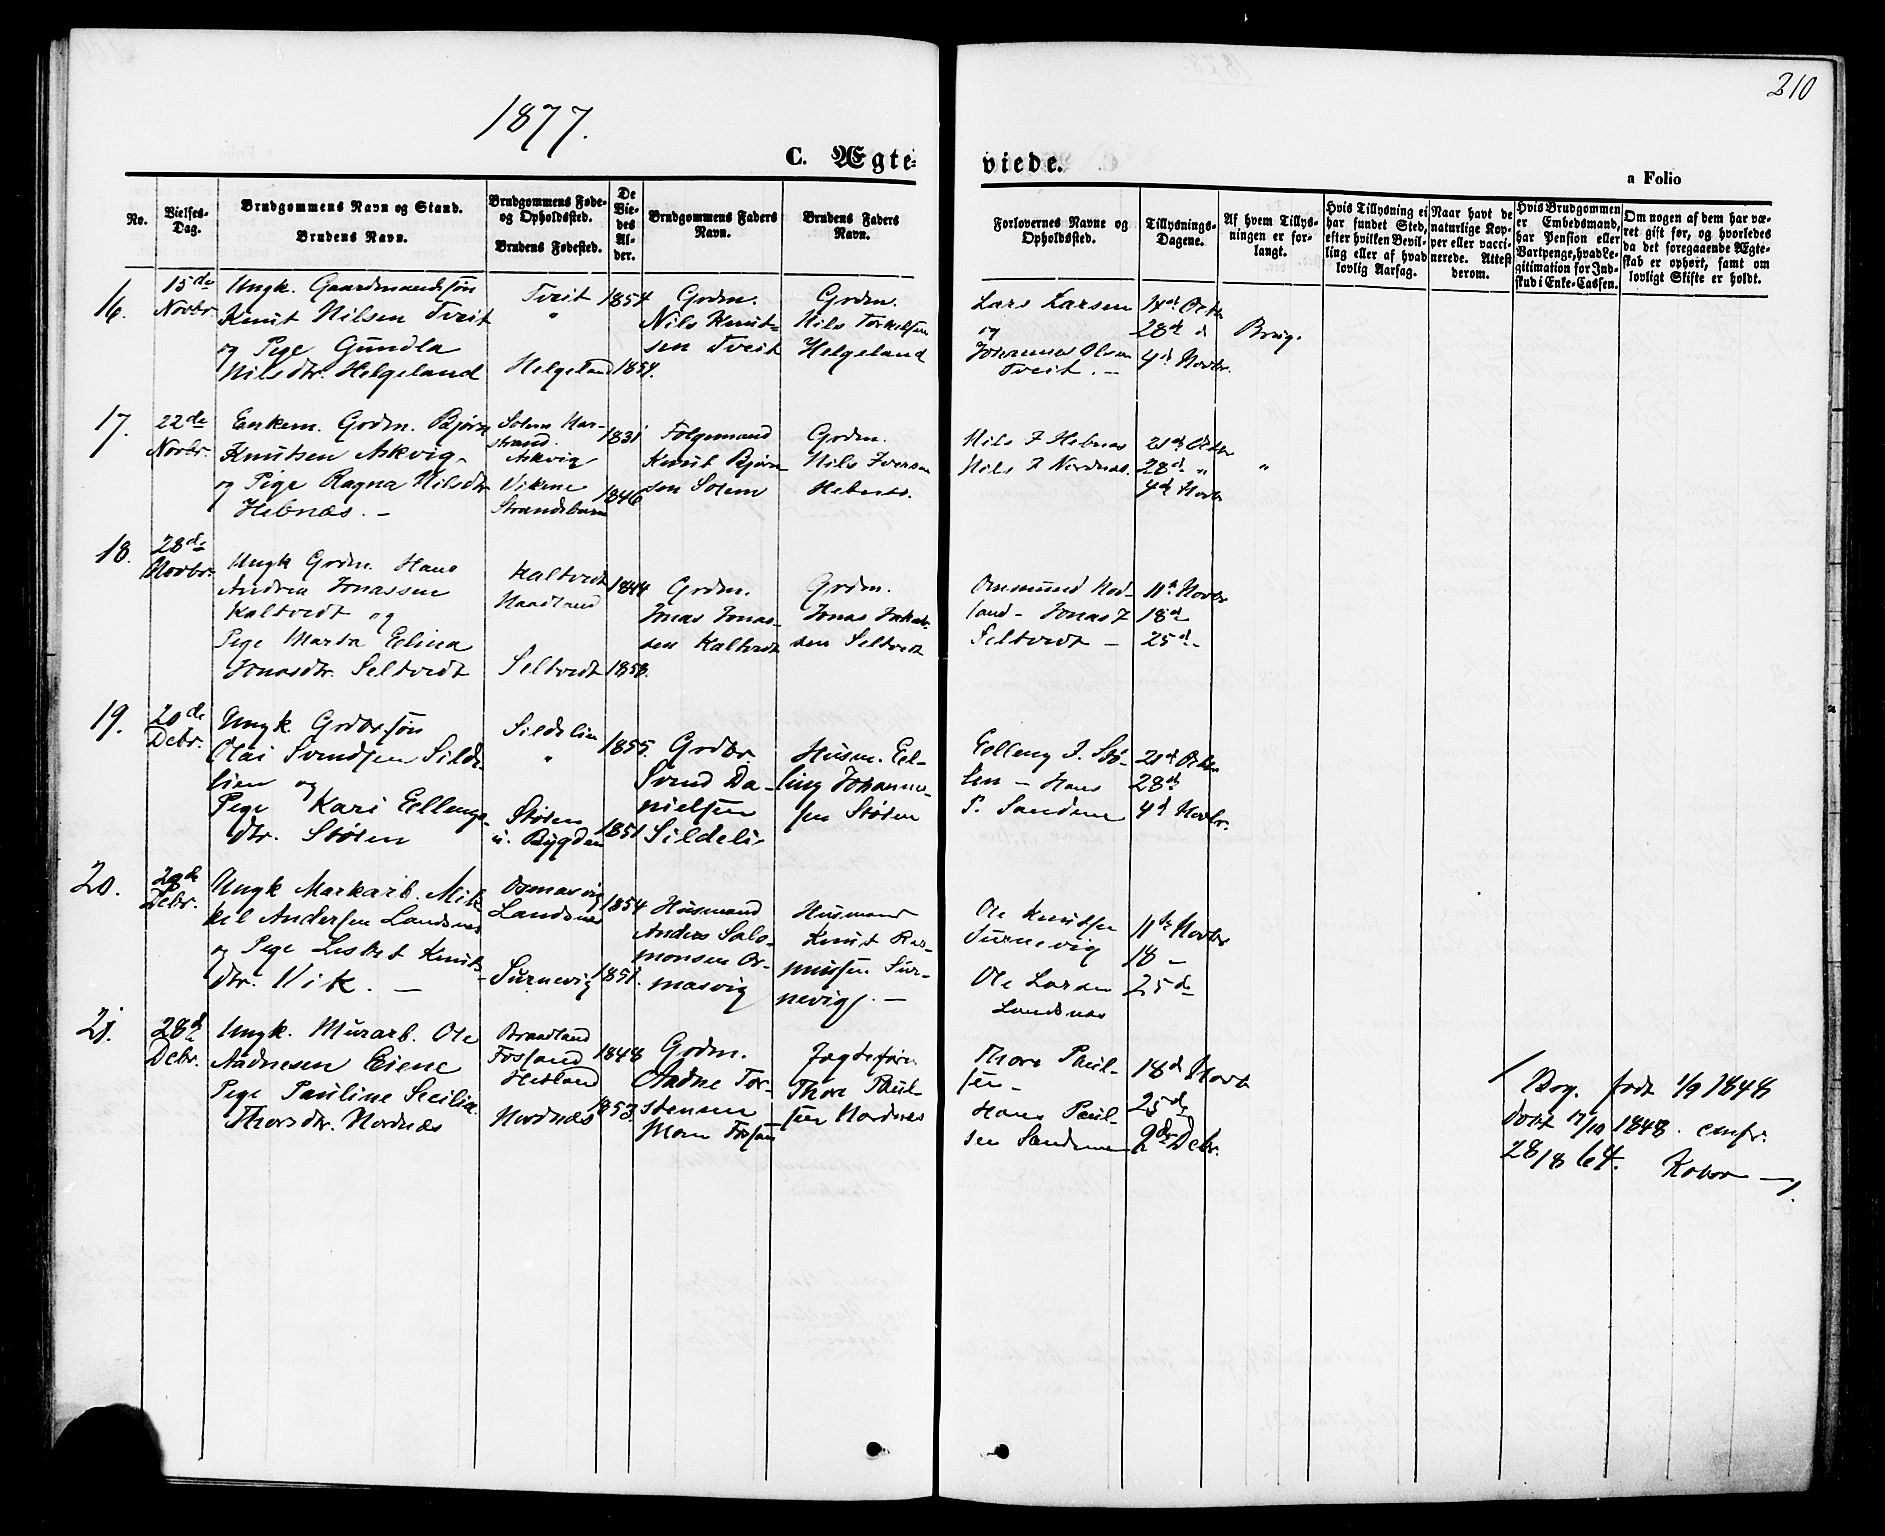 210
1877.
C. Ægte-
viede.
a Folio
No.
Vielses-
Dag.
Brudgommens Navn og Stand.
Brudens Navn.
Brudgommens Føde-
og Opholdssted.
Brudens Fødested.
De
Vie-
des
Al-
der.
Brudgommens Faders
Navn.
Brudens Faders
Navn.
Forlovernes Navne og
Opholdssted.
Tillysnings-
Dagene.
Af hvem Tillys-
ningen er for-
langt.
Hvis Tillysning ei
har fundet Sted,
efter hvilken Bevil-
ling eller af hvad
lovlig Aarsag.
Naar havt de
naturlige Kop-
per eller vacci-
nerede. Attest
derom.
Hvis Brudgommen
er Embedsmand,
har Pension eller
Vartpenge, hvad Le-
gitimation for Ind-
skud i Enke-Cassen.
Om nogen af dem har væ-
ret gift før, og hvorledes
da det foregaaende Ægte-
skab er ophørt, samt om
lovligt Skifte er holdt.
16.
15de
Novbr
Ungk. Gaardmandssøn
Knut Nilsen Tveit
og Pige Gundla
Nilsdtr. Helgeland
Tveit
"
Helgeland
1854
1854.
Grdm.
Nils Knut-
sen Tveit
Grdm.
Nils Torkelsen
Helgeland
Lars Larsen
og
Johannes Olsen
Tveit. —
28de d
4de Novbr.
Brug.
17.
22de
Novbr.
Enkem. Grdm. Bjørn
Knutsen Askvig
og Pige Ragna Nilsdtr
Hebnæs. —
Solem Har-
strand.
Askvig
Vikene
Strandebarm
1831
1846
Følgemand
Knut Bjørn-
sen Solem
Grdm.
Nils Iversen
Hebnes.
Nils I Hebnæs
Nils I Nordnæs.
21de Octbr
28de "
4de Novbr
"
18.
28de
Novbr.
Ungk Grdm. Hans
Andrea Jonassen
Kaltvedt og
Pige Marta Elina
Jonasdtr. Seltvedt
Kaltvedt
Seltvedt
1844
1858.
Grdm.
Jonas Jonas-
sen Kaltvedt
Grdm.
Jonas Jakob-
sen Seltvedt
Ommund Nød-
land - Jonas I
Seltvedt —
11te Novbr
18de
25de
19.
20de
Debr.
Ungk. Grdbr.søn
Olai Svendsen Silde-
lien og
Pige Kari Ellings-
dtr. Støsen
Sildelien
"
Støsen
i. Bygden
1855.
1851
Grdbr.
Svend Da-
nielsen
Sildeli-
Husm. El-
ling Johanne-
sen Støsen
Elling J. Stø-
sen — Hans
P. Sandene
21de Octbr
28de
4de Novbr.
20.
Debr.
Ungk Markarb. Mik-
kel Andersen Landsnæs
og Pige Lisbet Knuts-
dtr. Vik. —
Osmarvig
Landsnæs
Surnevig
1854
1851.
Husmand
Anders Salo-
monsen Or-
masvig
Husmand
Knut Ras-
mussen Sur-
nevig. —
Ole Knudsen
Surnevig
Ole Larsen
Landsnæs
11te Novbr
18 —
25de
21.
28de
Debr.
Ungk. Murarb. Ole
Aadnesen Eiene
Pige Pauline Secilie
Thorsdtr. Nordnæs
Braadland
Fossand
Hetland
Nordnæs
1848
1853.
Grdm.
Aadne Tor-
stensen
Thore Paul-
sen Nordnæs
Thore Paul-
sen —
Hans Paul-
sen Sandene
18de Novb
25de
9de Debr.
Brg. født 1/9 1848
døbt 17/10 1848. confr.
28/8 64.